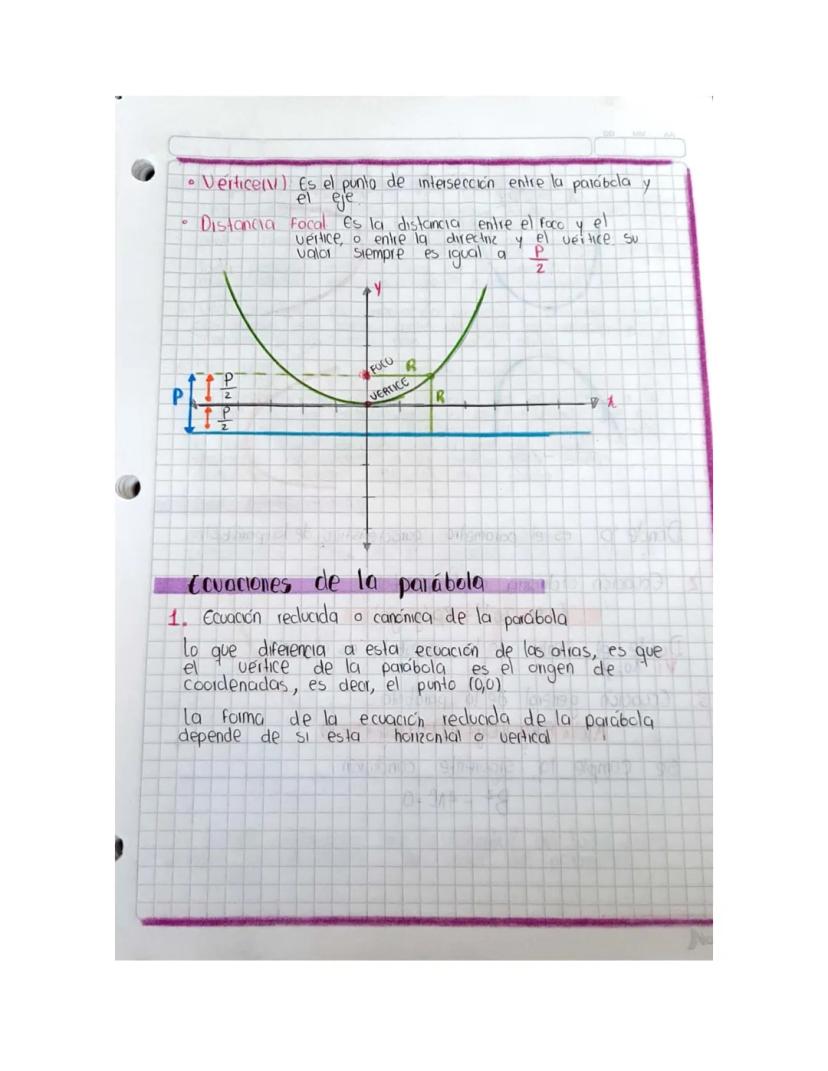 • Vértice(V) Es el punto de intersección entre la parábola y
el eje.
• Distancia Focal Es la distancia entre el foco y el
vértice, o entre la directriz y el vértice su
valor siempre es igual a P/2
y
FOCO R
VERTICE
R
P
P/2
P/2
x
Ecuaciones de la parábola
1. Ecuación reducida o canónica de la parábola
lo que diferencia a esta ecuación de las otras, es que
el vértice de la parábola es el origen de
coordenadas, es decir, el punto (0,0)
La forma de la ecuación reducida de la parábola
depende de si esta horizontal o vertical